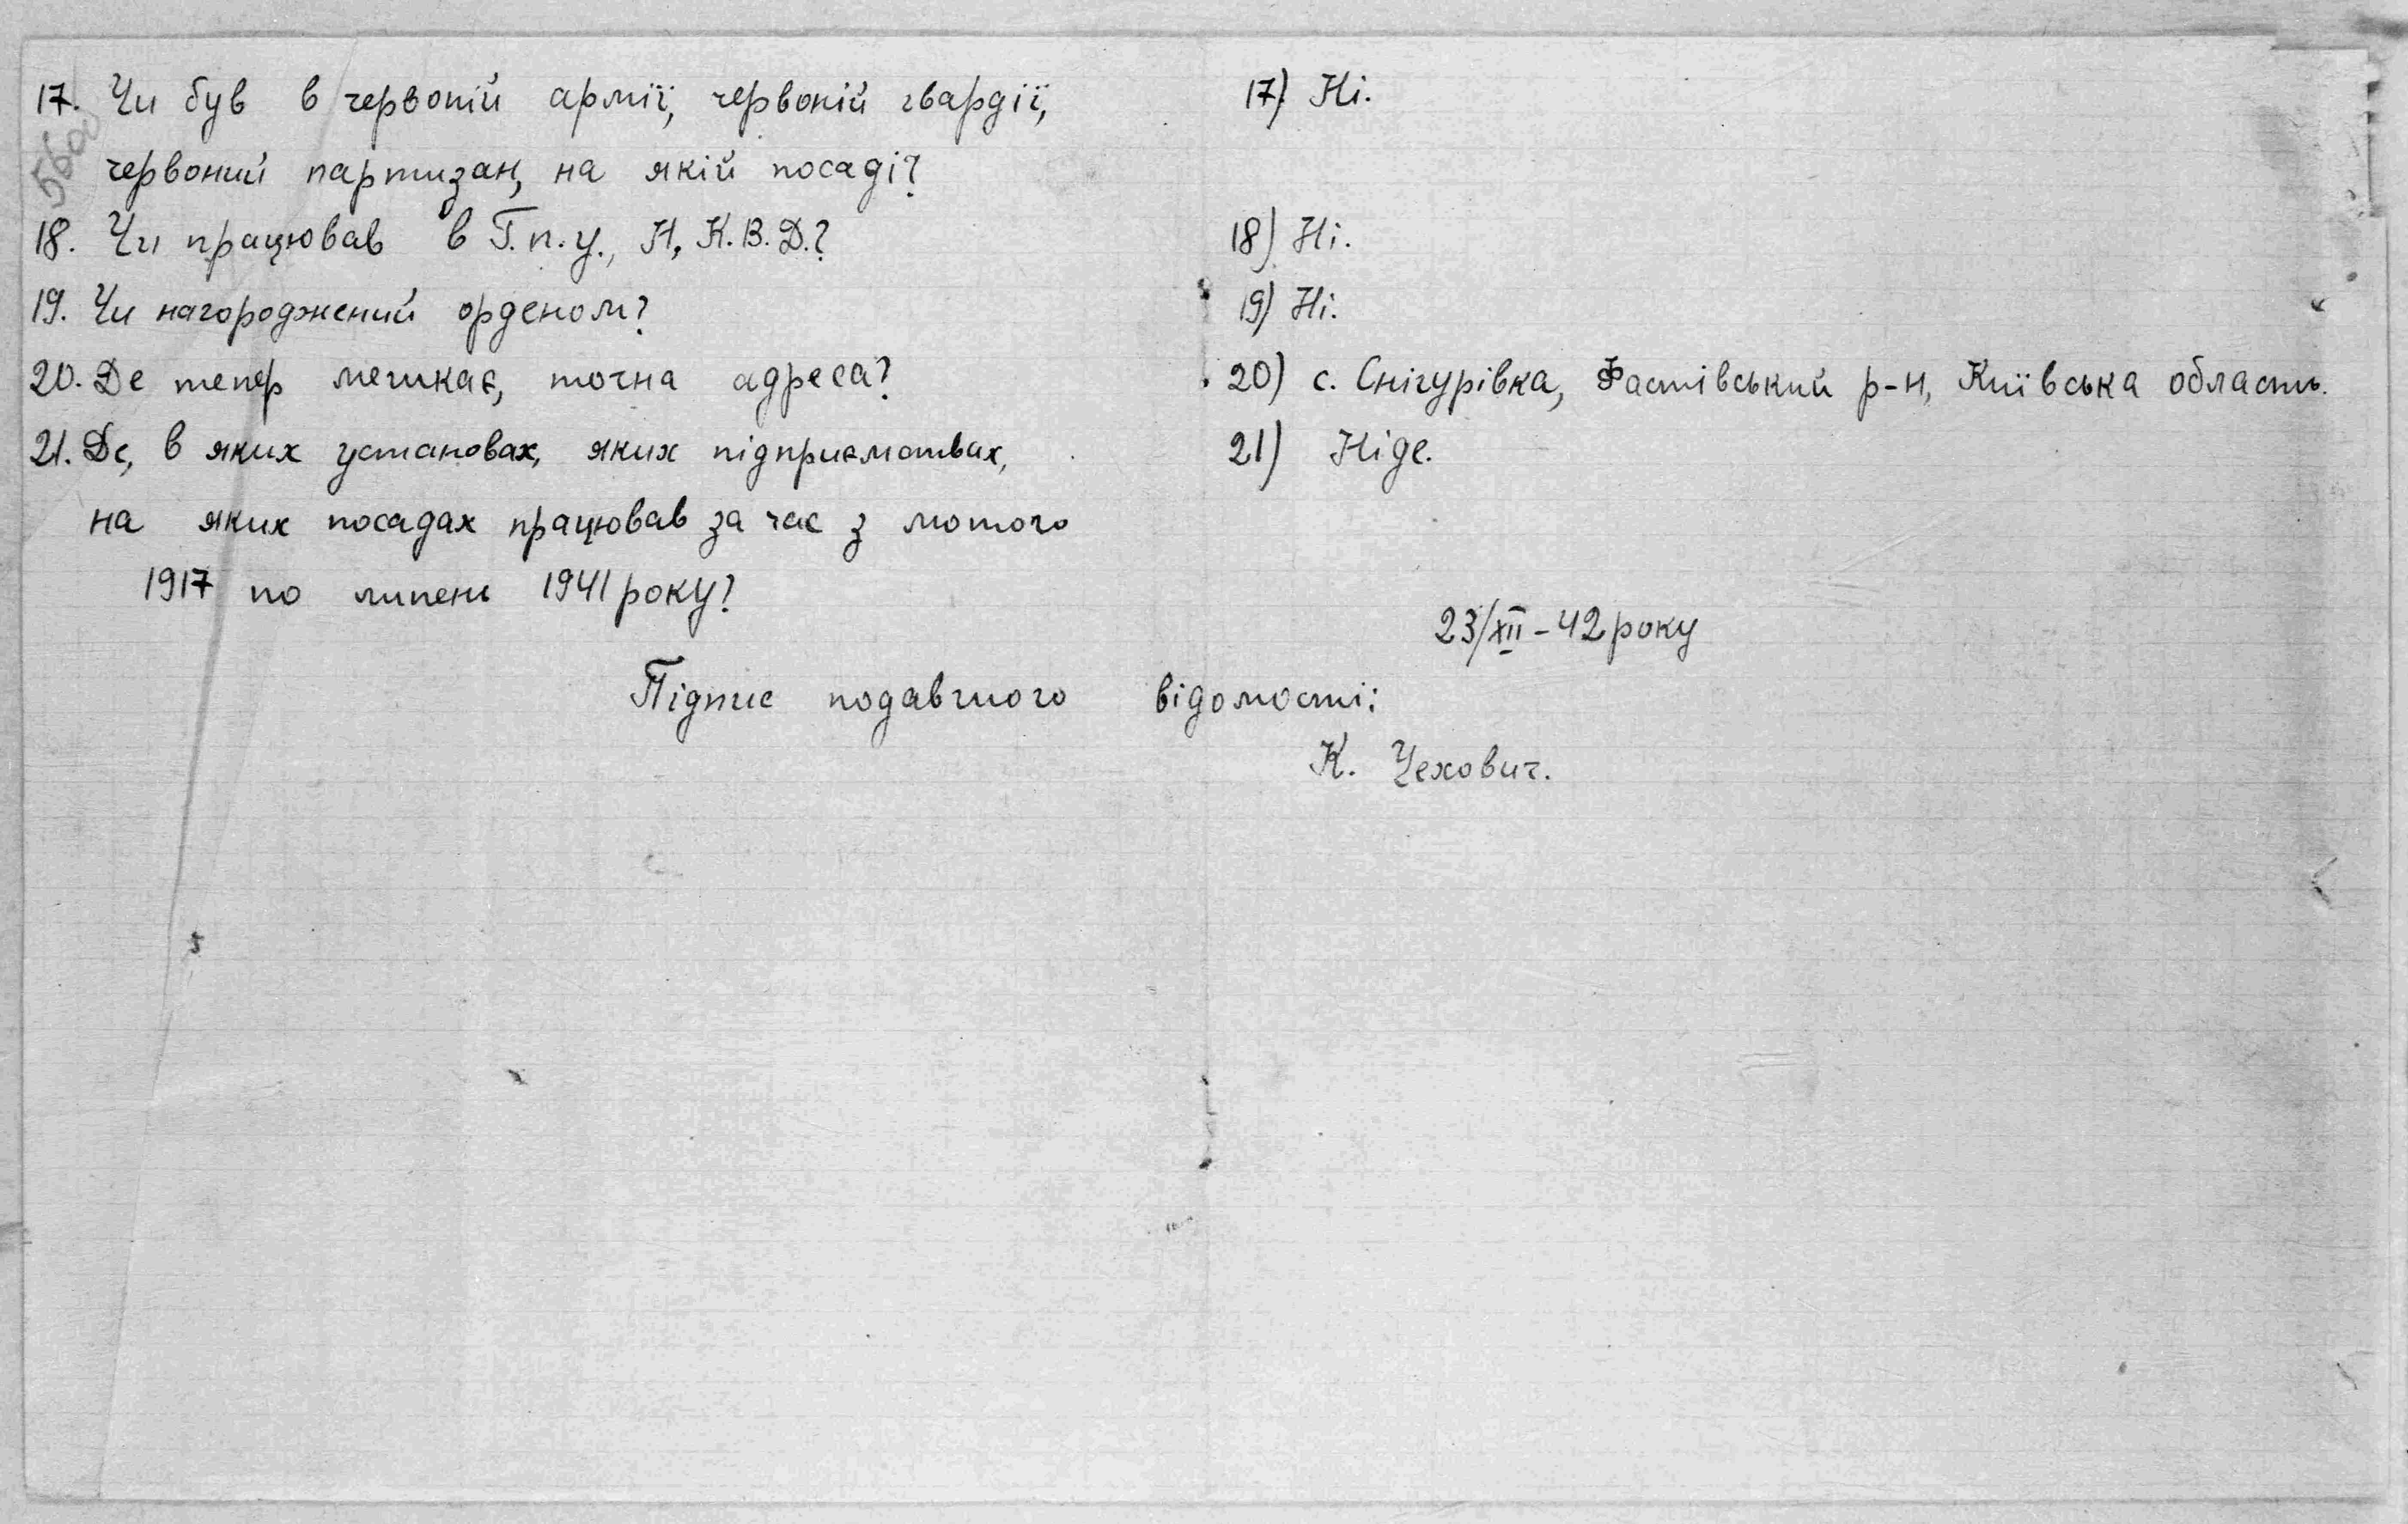 17. Чи був в червоній армії, червоній гвардії,
17) Ні.
червоний партизан, на якій посаді?
18. Чи працював в Г.п.у., Н.К.В.Д.?
18) Ні.
19. Чи нагороджений орденом?
19) Ні.
20. Де тепер мешкає, точна адреса?
20) с. Снігурівка, Фастівський р-н, Київська область.
21. Де, в яких установах, яких підприємствах,
21) Ніде.
на яких посадах працював за час з лютого
1917 по липень 1941 року?
23/XII - 42 року
Підпис подавчого відомості:
К. Чехович.